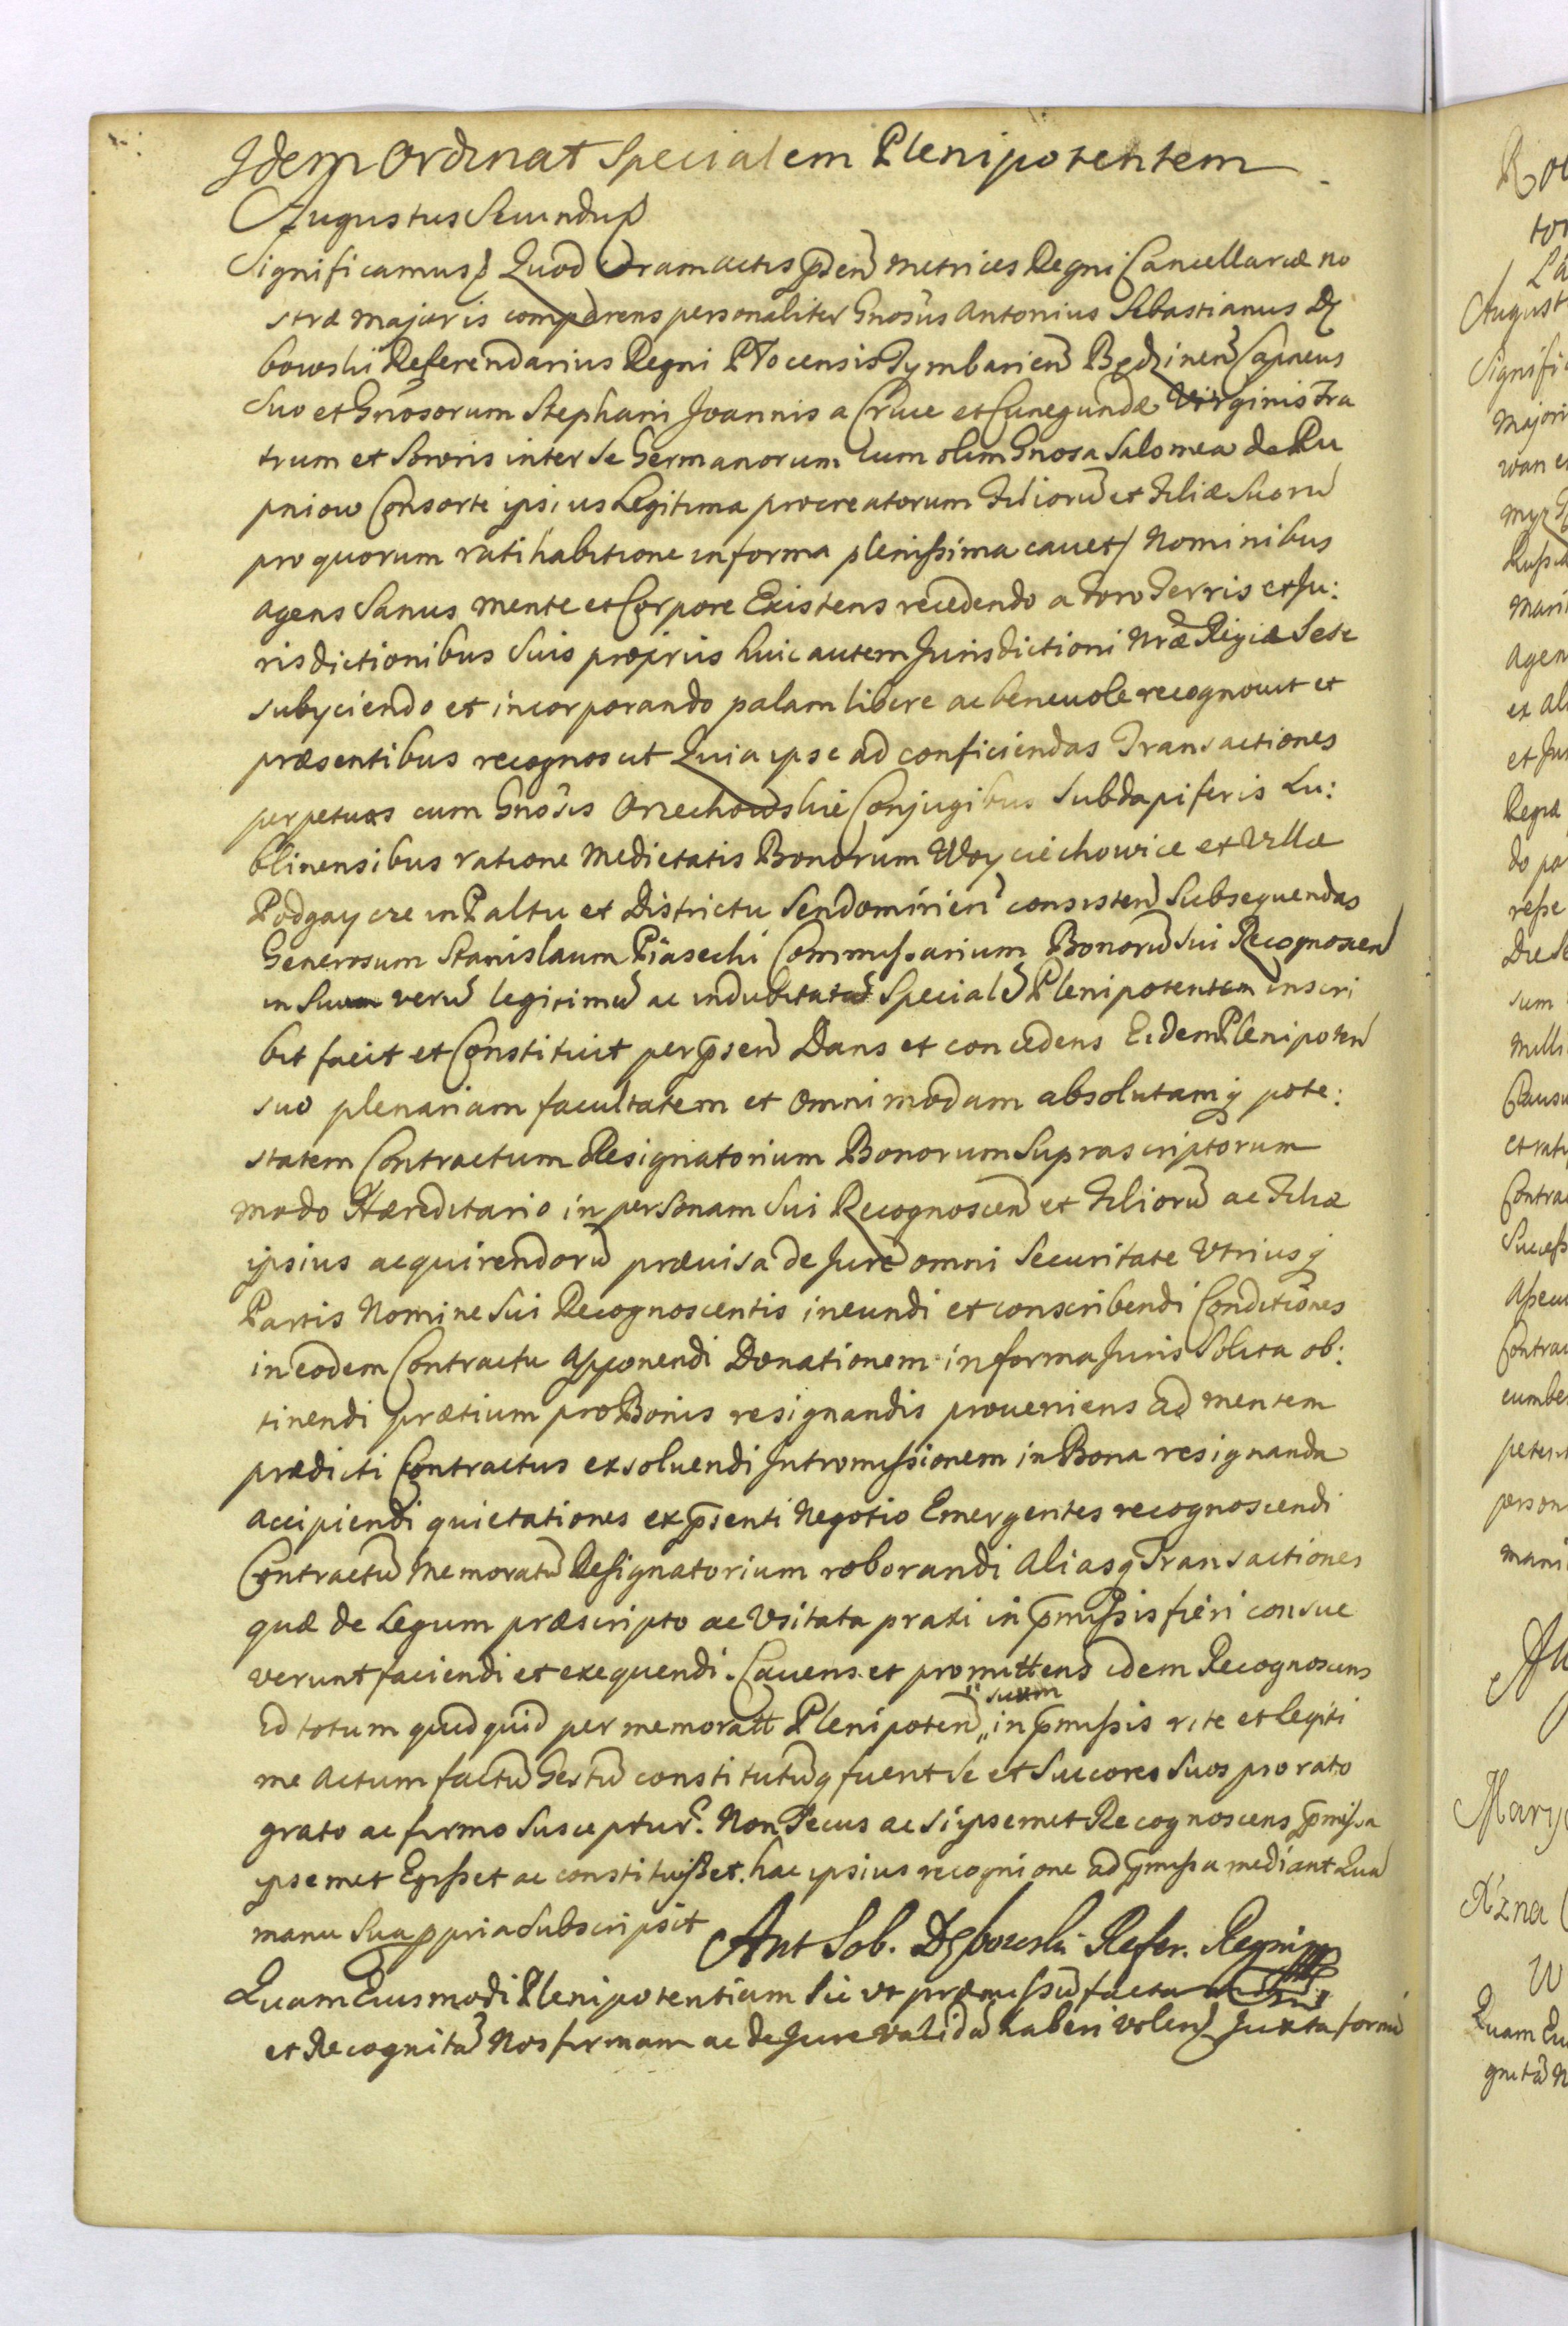 Idem Ordinat Specialem Plenipotentem
Augustus Secundus
Significamus Quod Coram actis pñsen Metrices Regni Cancellariæ no
stræ majoris comparens personaliter Gnosus Antonius Sebastianus Dę
bowski Referendarius Regni Płocensis Tymbarien Będzinen Capneus
Suo et Gnosorum Stephani Joannis a Cruce et Cunegundæ Virginis Fra
trum et Sororis inter se Germanorum cum olim Gnosa Salomea de Ru
pniow Consorte ipsius Legitima procreatorum Filiorũ et Filiæ Suorũ
pro quorum ratihabitione in forma plenissima cauet Nominibus
agens Sanus mente et Corpore Existens recedendo a foro Terris et Ju:
risdictionibus Suis proprijs huic autem Jurisdictioni Nræ Regiæ Sese
subyciendo et incorporando palam libere ac beneuole recognouit et
præsentibus recognoscit Quia ipse ad conficiendas Transactiones
perpetuas cum Gnosis Orzechowskie Conjugibus Subdapiferis Lu:
blinensibus ratione Medietatis Bonorum Woyciechowice et Villæ
Podgaycze in Paltu et Districtu Sendomirien consisten Subsequendas
Generosum Stanislaum Piasecki Commissarium Bonorũ Sui Recognoscen
in Suum verũ legitimũ ac indubitatũ Specialẽ Plenipotentem inscri
bit facit et Constituit per pñsen Dans et concedens Eidem Plenipoten
suo plenariam facultatem et omnimodam absolutamq pote:
statem Contractum Resignatorium Bonorum Suprascriptorum
modo Hæreditario in personam Sui Recognoscen et Filiorũ ac Filiæ
ipsius acquirendorũ præuisa de Jure omni Securitate Vtriusq
Partis Nomine Sui Recognoscentis ineundi et conscribendi Conditiones
in eodem Contractu Apponendi Donationem in forma Juris Solita ob:
tinendi prætium pro Bonis resignandis proueniens ad mentem
prædicti Contractus exsoluendi Intromissionem in Bona resignanda
accipiendi quietationes ex pñsenti Negotio Emergentes recognoscendi
Contractũ Memoratũ Resignatorium roborandi Aliasq Transactiones
quæ de Legum præscripto ac Vsitata praxi in pmissis fieri consue
verunt faciendi et exequendi. Cauens et promittens idem Recognoscens
id totum quidquid per memoratũ Plenipoten „ suum in pmissis rite et Legiti
me Actum factũ Gestũ constitutũq fuerit Se et Succores Suos pro rato
grato ac firmo Suscepturũ. Non Secus ac si ipsemet Recognoscens pmissa
ipsemet Egisset ac constituisset. hac ipsius recognione ad pmissa mediant Quã
manu Sua ppria Subscripsit Ant Seb. Dębowski Refer. Regni
Quam Eiusmodi Plenipotentiam Sic vt præmissũ facta
et Recognitã Nos firmam ac de Jure validã haberi volen Juxta formã